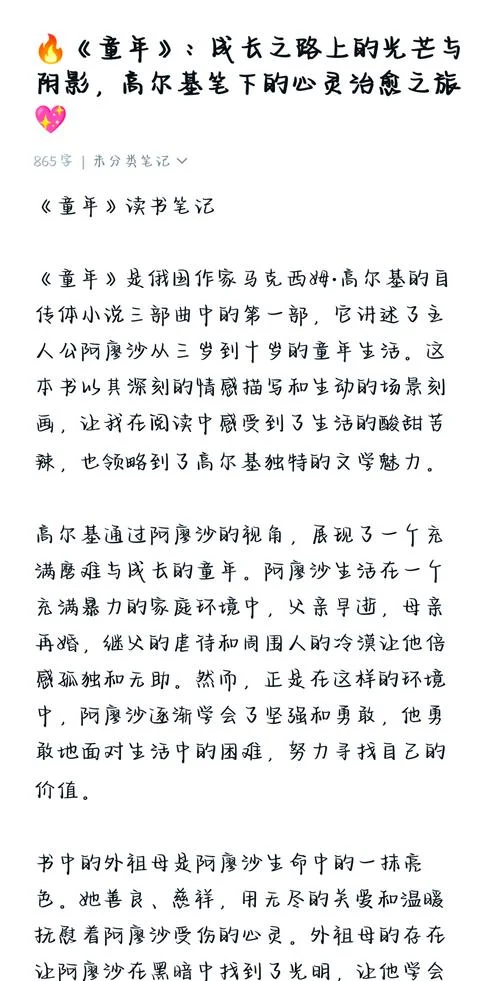 🔥《童年》：成长之路上的光芒与
阴影，高尔基笔下的心灵治愈之旅
💖
865字 | 未分类笔记
《童年》读书笔记
《童年》是俄国作家马克西姆·高尔基的自
传体小说三部曲中的第一部，它讲述了主
人公阿廖沙从三岁到十岁的童年生活。这
本书以其深刻的情感描写和生动的场景刻
画，让我在阅读中感受到了生活的酸甜苦
辣，也领略到了高尔基独特的文学魅力。
高尔基通过阿廖沙的视角，展现了一个充
满磨难与成长的童年。阿廖沙生活在一个
充满暴力的家庭环境中，父亲早逝，母亲
再婚，继父的虐待和周围人的冷漠让他倍
感孤独和无助。然而，正是在这样的环境
中，阿廖沙逐渐学会了坚强和勇敢，他勇
敢地面对生活中的困难，努力寻找自己的
价值。
书中的外祖母是阿廖沙生命中的一抹亮
色。她善良、慈祥，用无尽的关爱和温暖
抚慰着阿廖沙受伤的心灵。外祖母的存在
让阿廖沙在黑暗中找到了光明，让他学会